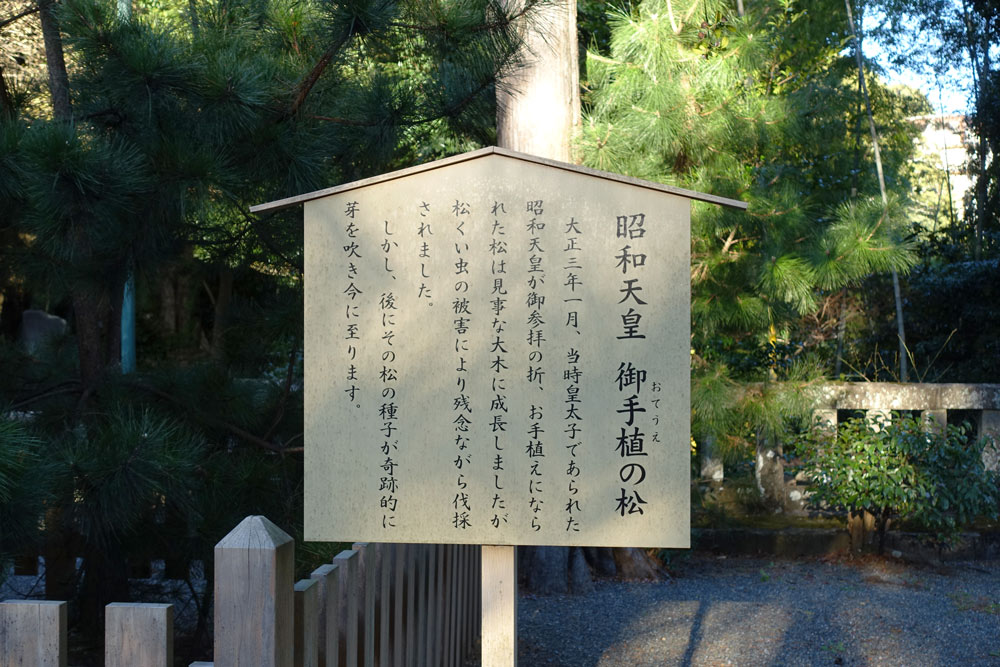 昭和天皇 御手植の松
おてうえ
大正三年一月、当時皇太子であられた
昭和天皇が御参拝の折、お手植えになら
れた松は見事な大木に成長しましたが
松くい虫の被害により残念ながら伐採
されました。
しかし、後にその松の種子が奇跡的に
芽を吹き今に至ります。